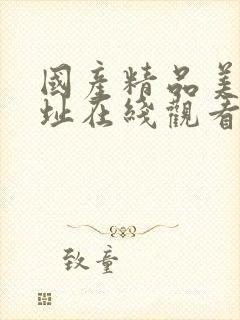 國產精品美
址在綫觀看
致童